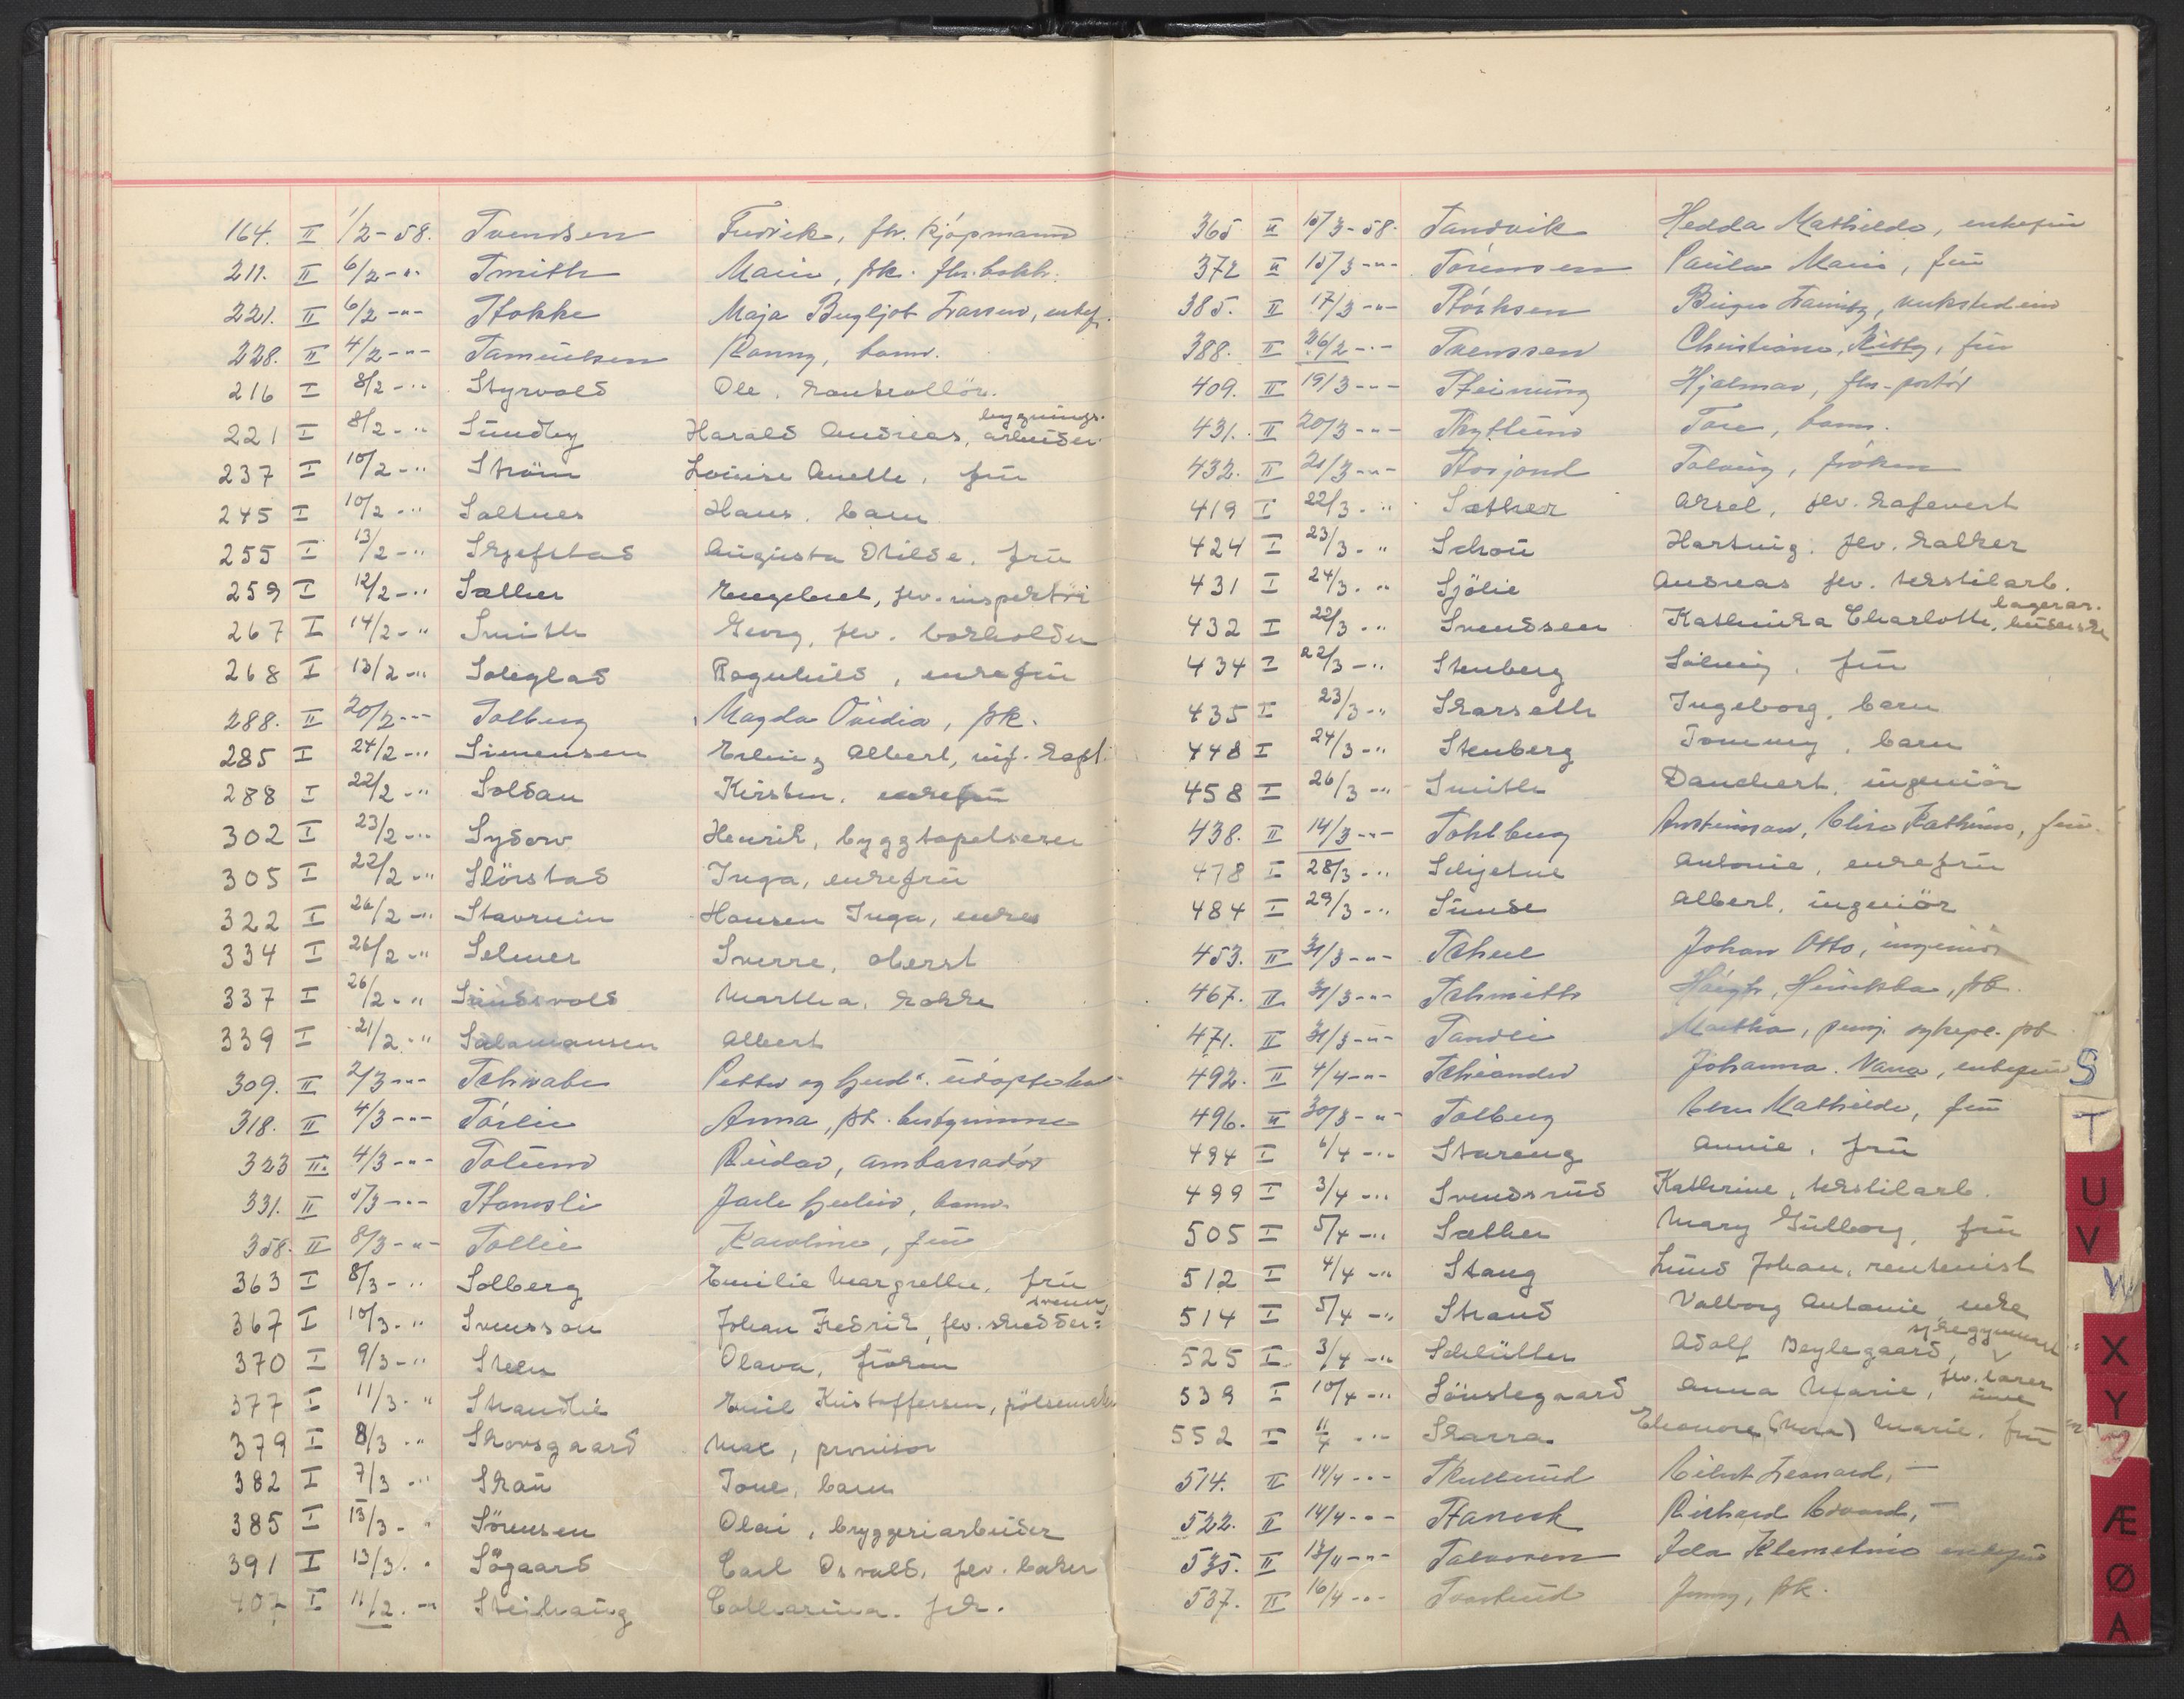 164. II 1/2-58. Svendsen Fredrik, fhv. kjøpmann
211. II 6/2-"- Smith Marie, frk. fhv. bokh.
221. II 6/2-"- Stokke Maja Bergljot Larsen, enkef.
228. II 4/2-"- Samuelsen Ronny, barn.
216 I 8/2-" Styrvold Ole, kontrollör.
221 I 8/2-" Sundby Harald Andreas, bygnings-arbeider
237 I 10/2-" Ström Louise Anette, frü
245 I 10/2-" Saltnes Hans, barn
255 I 13/2-" Skjefstad Augusta Otilde, frü
259 I 12/2-" Sæther Engebret, fhv. inspektör
267 I 14/2-" Smith Georg, fhv. bokholder
268 I 13/2-" Soleglad Ragnhild, enkefrü
288. II 20/2-"- Solberg Magda Ovidia, frk.
285 I 24/2-" Simensen Erling Albert, inf. kapt.
288 I 22/2-" Soldan Kirsten, enkefrü
302 I 23/2-" Sydow Henrik,
305 I 22/2-" Slörstad Inga, enkefrü
322 I 26/2-" Stavrum Hansen Inga, enke
334 I 26/2-" Selmer Sverre, oberst
337 I 26/2-" Sündsvold Martha, kokke
339 I 21/2-" Salamonsen Albert
309. II 2/3-"- Schwabe Petter og
318. II 4/3-"- Sørlie Anna, frk. bestyrerinne
323 II. 4/3-"- Solum Reidar, ambassadør
331. II 5/3-"- Stamsli Jarle barn.
358. II 8/3-"- Sollie Karoline, frü
363 I 8/3-" Solberg Emilie Margrethe, frü
367 I 10/3-" Svensson Johan Fredrik, fhv. skredder-svenn
370 I 9/3-" Steen Olava, fröken
377 I 11/3-" Strandlie Emil Kristoffersen, pölsemaker
379 I 8/3-" Skovsgaard Max, provisor
382 I 7/3-" Skau Tone, barn
385 I 13/3-" Sörensen Olai, bryggeriarbeider
391 I 13/3-" Sögaard Carl Osvald, fhv. baker
407 I 11/2-" Steihaug Catharina. frk.
365 II 15/3-58. Sandvik Hedda Mathilde, enkefrü
372 II 15/3-"- Sørensen Paula Marie, frü
385. II 17/3-"- Størksen Birger verkstedeier
388. II 26/2-"- Svenssen Christiane, Kitty, frü
409. II 19/3-"- Steinung Hjalmar, fhv. portør
431. II 20/3-"- Tore, barn.
432. II 21/3-"- Solveig, frøken
419 I 22/3-" Sæther Aksel, fhv. kafevert
424 I 23/3-" Schou Hartvig, fhv. kalker
431 I 24/3-" Sjölie Andreas fhv. tekstilarb.
432 I 22/3-" Svendsen Kathinka Charlotte,
434 I 22/3-" Stenberg Solveig, frü
435 I 23/3-" Skarseth Ingeborg, barn
448 I 24/3-" Stenberg Tommy, barn
458 I 26/3-" Smith Danckert, ingeniör
438. II 14/3-"- Stohlberg Arnteinsen, Elise Kathrine, frü.
478 I 28/3-" Schjetne Antonie, enkefrü
484 I 29/3-" Sünde Albert, ingeniör
453. II 31/3-"- Scheel Johan Otto, ingeniør
467. II 31/3-"- Schmith Høegh, Henrikka, frk.
471. II 31/3-"- Sandli Martha, pensj. sykepl. frk
492. II 4/4-"- Schiander Johanna. Nanna, enkefrü
496. II 30/3-"- Solberg Mathilde, frü
494 I 6/4-" Stareng Annie, frü
499 I 3/4-" Svendsrud Kathrine, tekstilarb.
505 I 5/4-" Sæther Mary Gulborg, frü
512 I 4/4-" Stang Lund Johan, rentenist
514 I 5/4-" Strand Valborg Antonie enke
525 I 3/4-" Schlütter Adolf Beylegaard, sykegymnast
539 I 10/4-" Sönstegaard Anna Marie, fhv. lærerinne
552 I 11/4-" Skarra Eleonore (Nora) Marie, frü
514. II 14/4-"- Skullerud Leonard, —
522. II 14/4-"- Stanick Richard Edvard, —
535. II 13/4-"- Salvesen Ida Klementine enkefrü
537. II 16/4-"- Jenny, frk.
S
T
U
V
W
X
Y
Z
Æ
Ø
A